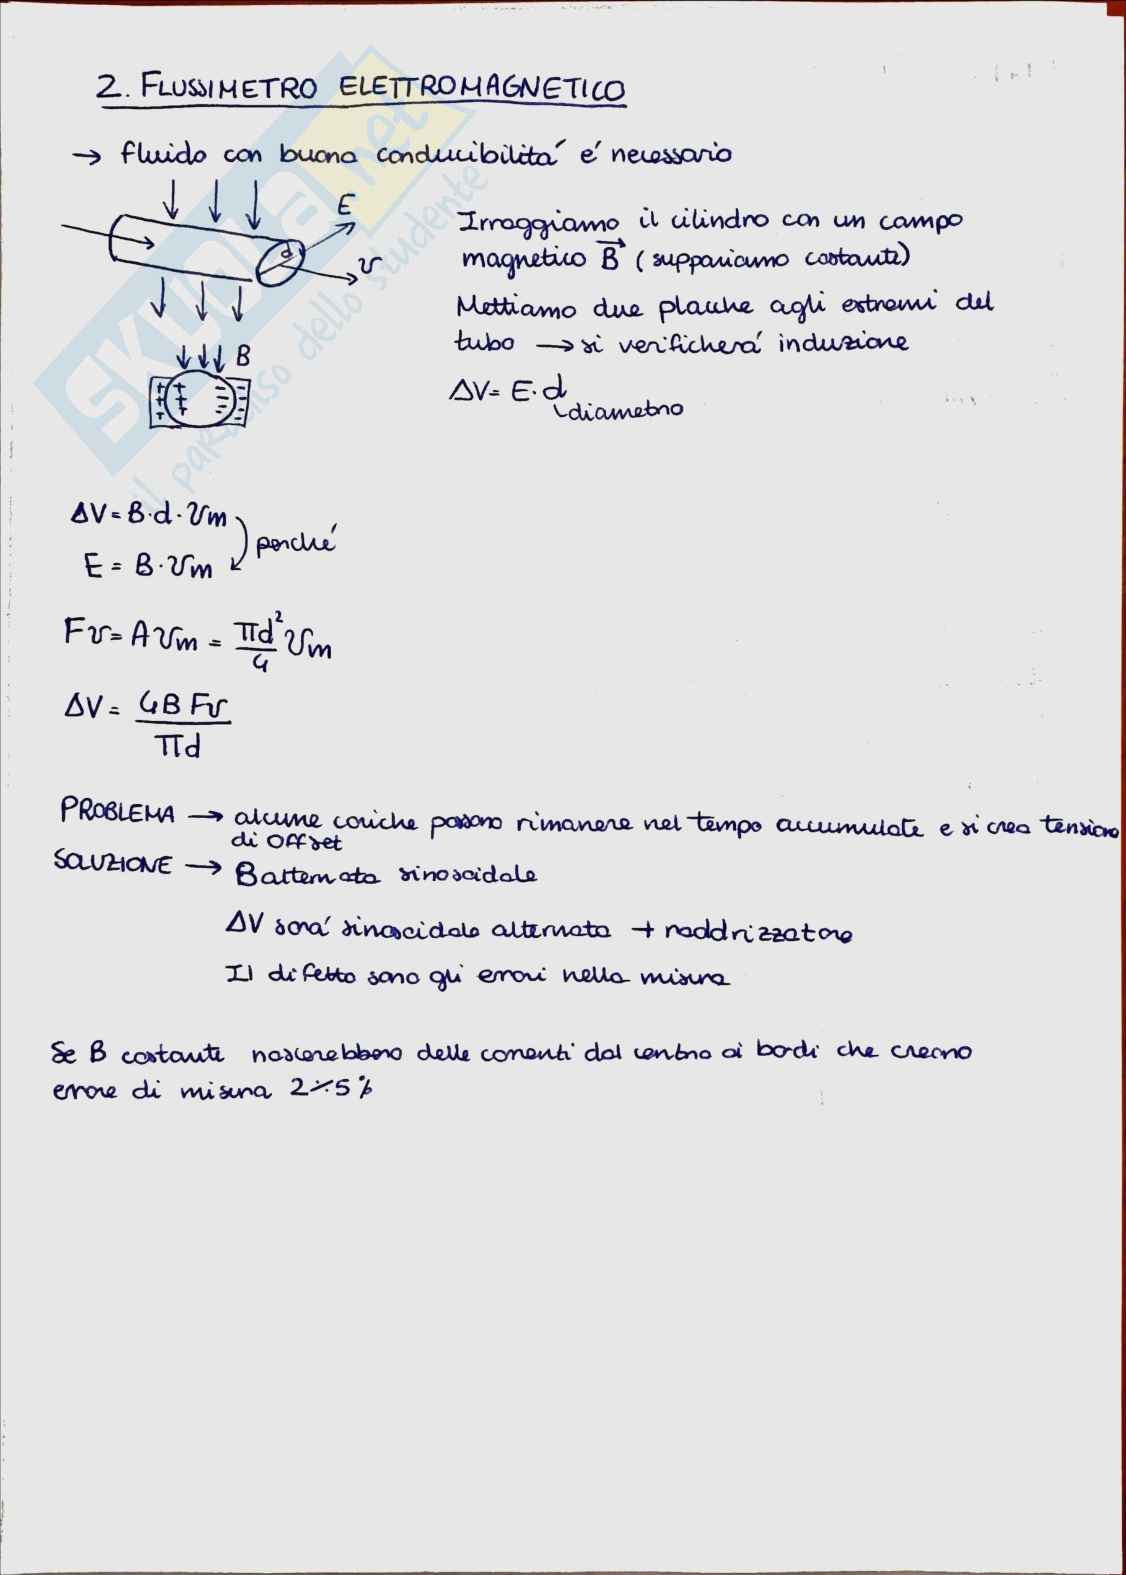 2. FLUSSIMETRO ELETTROMAGNETICO
→ fluido con buona conducibilità é necessario
E
d
v
B
+ + + + +
- - - - - -
Irraggiamo il cilindro con un campo
magnetico B⃗ (supponiamo costante)
Mettiamo due placche agli estremi del
tubo → si verificherá induzione
ΔV = E · d
diametro
ΔV = B · d · vm
perché
E = B · vm
Fv = A vm = πd²/4 vm
ΔV = 4B Fv / πd
PROBLEMA → alcune cariche possono rimanere nel tempo accumulate e si crea tensione
di offset
SOLUZIONE → B alternata sinosoidale
ΔV sará sinosoidale alternata + raddrizzatore
Il difetto sono gli errori nella misura
Se B costante nascerebbero delle correnti dal centro ai bordi che creano
errore di misura 2÷5%
skuola.net
il paradiso dello studente